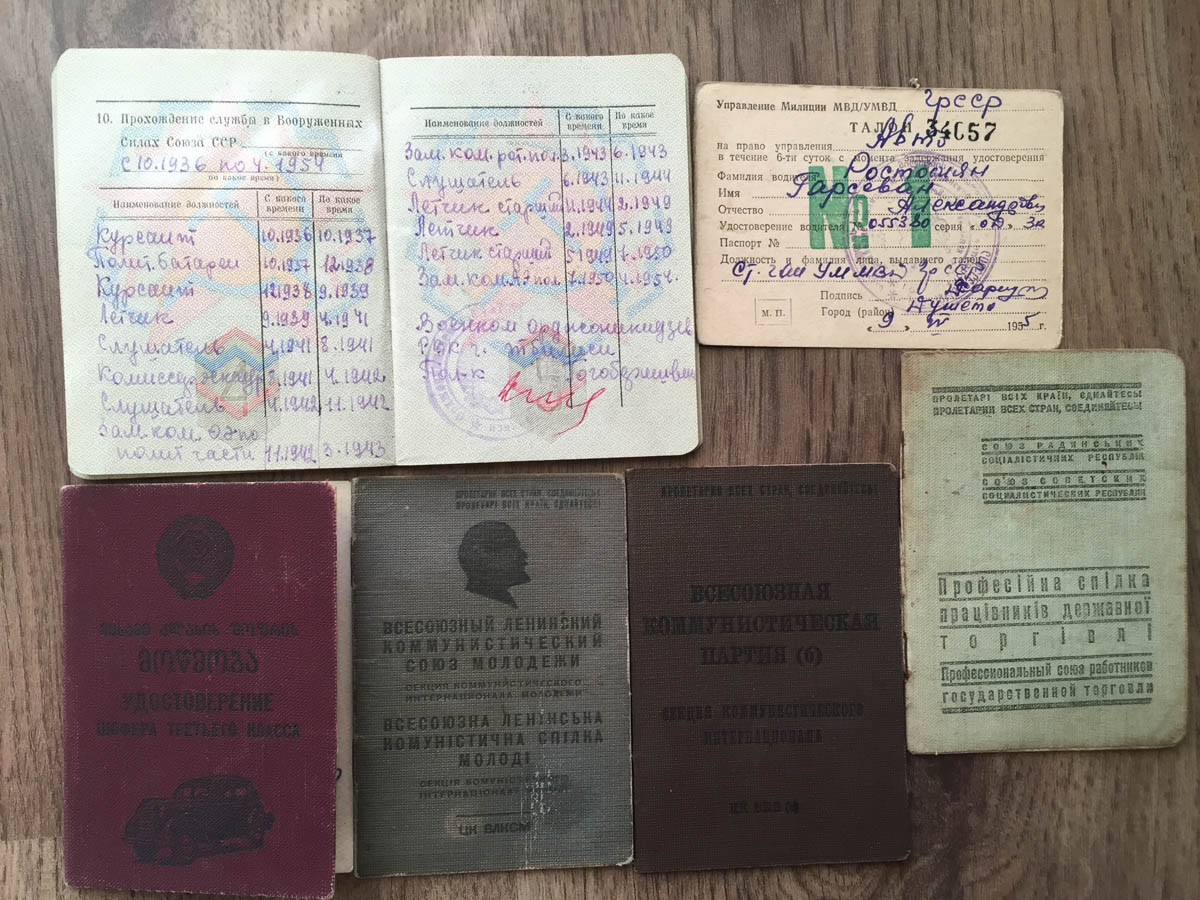 10. Прохождение службы в Вооруженных
Силах Союза ССР
(с какого времени
С 10.1936 по 4.1954
по какое время)
Наименование должностей С какого времени По какое время
Курсант 10.1936 10.1937
Полит. батареи 10.1937 12.1938
Курсант 12.1938 9.1939
Летчик 9.1939 4.1941
Слушатель 4.1941 8.1941
Комиссар 8.1941 4.1942
Слушатель 4.1942 11.1942
Зам. ком.
полит части 11.1942 3.1943
Наименование должностей С какого времени По какое время
Зам. ком. 3.1943 6.1943
Слушатель 6.1943 11.1944
Летчик старший 11.1944 2.1949
Летчик 2.1949 5.1949
Летчик старший 5.1949 7.1950
Зам. 7.1950 4.1954.
Военком орджоникидзев
РВК г. Тбилиси
Управление Милиции МВД/УМВД ГРССР
ТАЛОН 34057
на право управления Авто
в течение 6-ти суток с момента задержания удостоверения
Фамилия водителя Костосиян
Имя Гарсеван
Отчество
Удостоверение водителя № 055330 серия
Паспорт №
Должность и фамилия лица, выдавшего талон
Ст. ГАИ
№ 1
Подпись
М. П.
Город (район) Душети
9 1955 г.
მესამე კლასის შოფრის
მოწმობა
УДОСТОВЕРЕНИЕ
ШОФЕРА ТРЕТЬЕГО КЛАССА
ПРОЛЕТАРИИ ВСЕХ СТРАН, СОЕДИНЯЙТЕСЬ!
ПРОЛЕТАРІ ВСІХ КРАЇН, ЄДНАЙТЕСЯ!
ВСЕСОЮЗНЫЙ ЛЕНИНСКИЙ
КОММУНИСТИЧЕСКИЙ
СОЮЗ МОЛОДЕЖИ
СЕКЦИЯ КОММУНИСТИЧЕСКОГО
ИНТЕРНАЦИОНАЛА МОЛОДЕЖИ
ВСЕСОЮЗНА ЛЕНІНСЬКА
КОМУНІСТИЧНА СПІЛКА
МОЛОДІ
СЕКЦІЯ КОМУНІСТИЧНОГО
ІНТЕРНАЦІОНАЛУ
ЦК ВЛКСМ
ПРОЛЕТАРИИ ВСЕХ СТРАН, СОЕДИНЯЙТЕСЬ!
ВСЕСОЮЗНАЯ
КОММУНИСТИЧЕСКАЯ
ПАРТИЯ (б)
СЕКЦИЯ КОММУНИСТИЧЕСКОГО
ИНТЕРНАЦИОНАЛА
ЦК ВКП (б)
ПРОЛЕТАРІ ВСІХ КРАЇН, ЄДНАЙТЕСЬ
ПРОЛЕТАРИИ ВСЕХ СТРАН, СОЕДИНЯЙТЕСЬ
СОЮЗ РАДЯНСЬКИХ
СОЦІАЛІСТИЧНИХ РЕСПУБЛІК
СОЮЗ СОВЕТСКИХ
СОЦИАЛИСТИЧЕСКИХ РЕСПУБЛИК
Професійна спілка
працівників державної
торгівлі
Профессиональный союз работников
государственной торговли